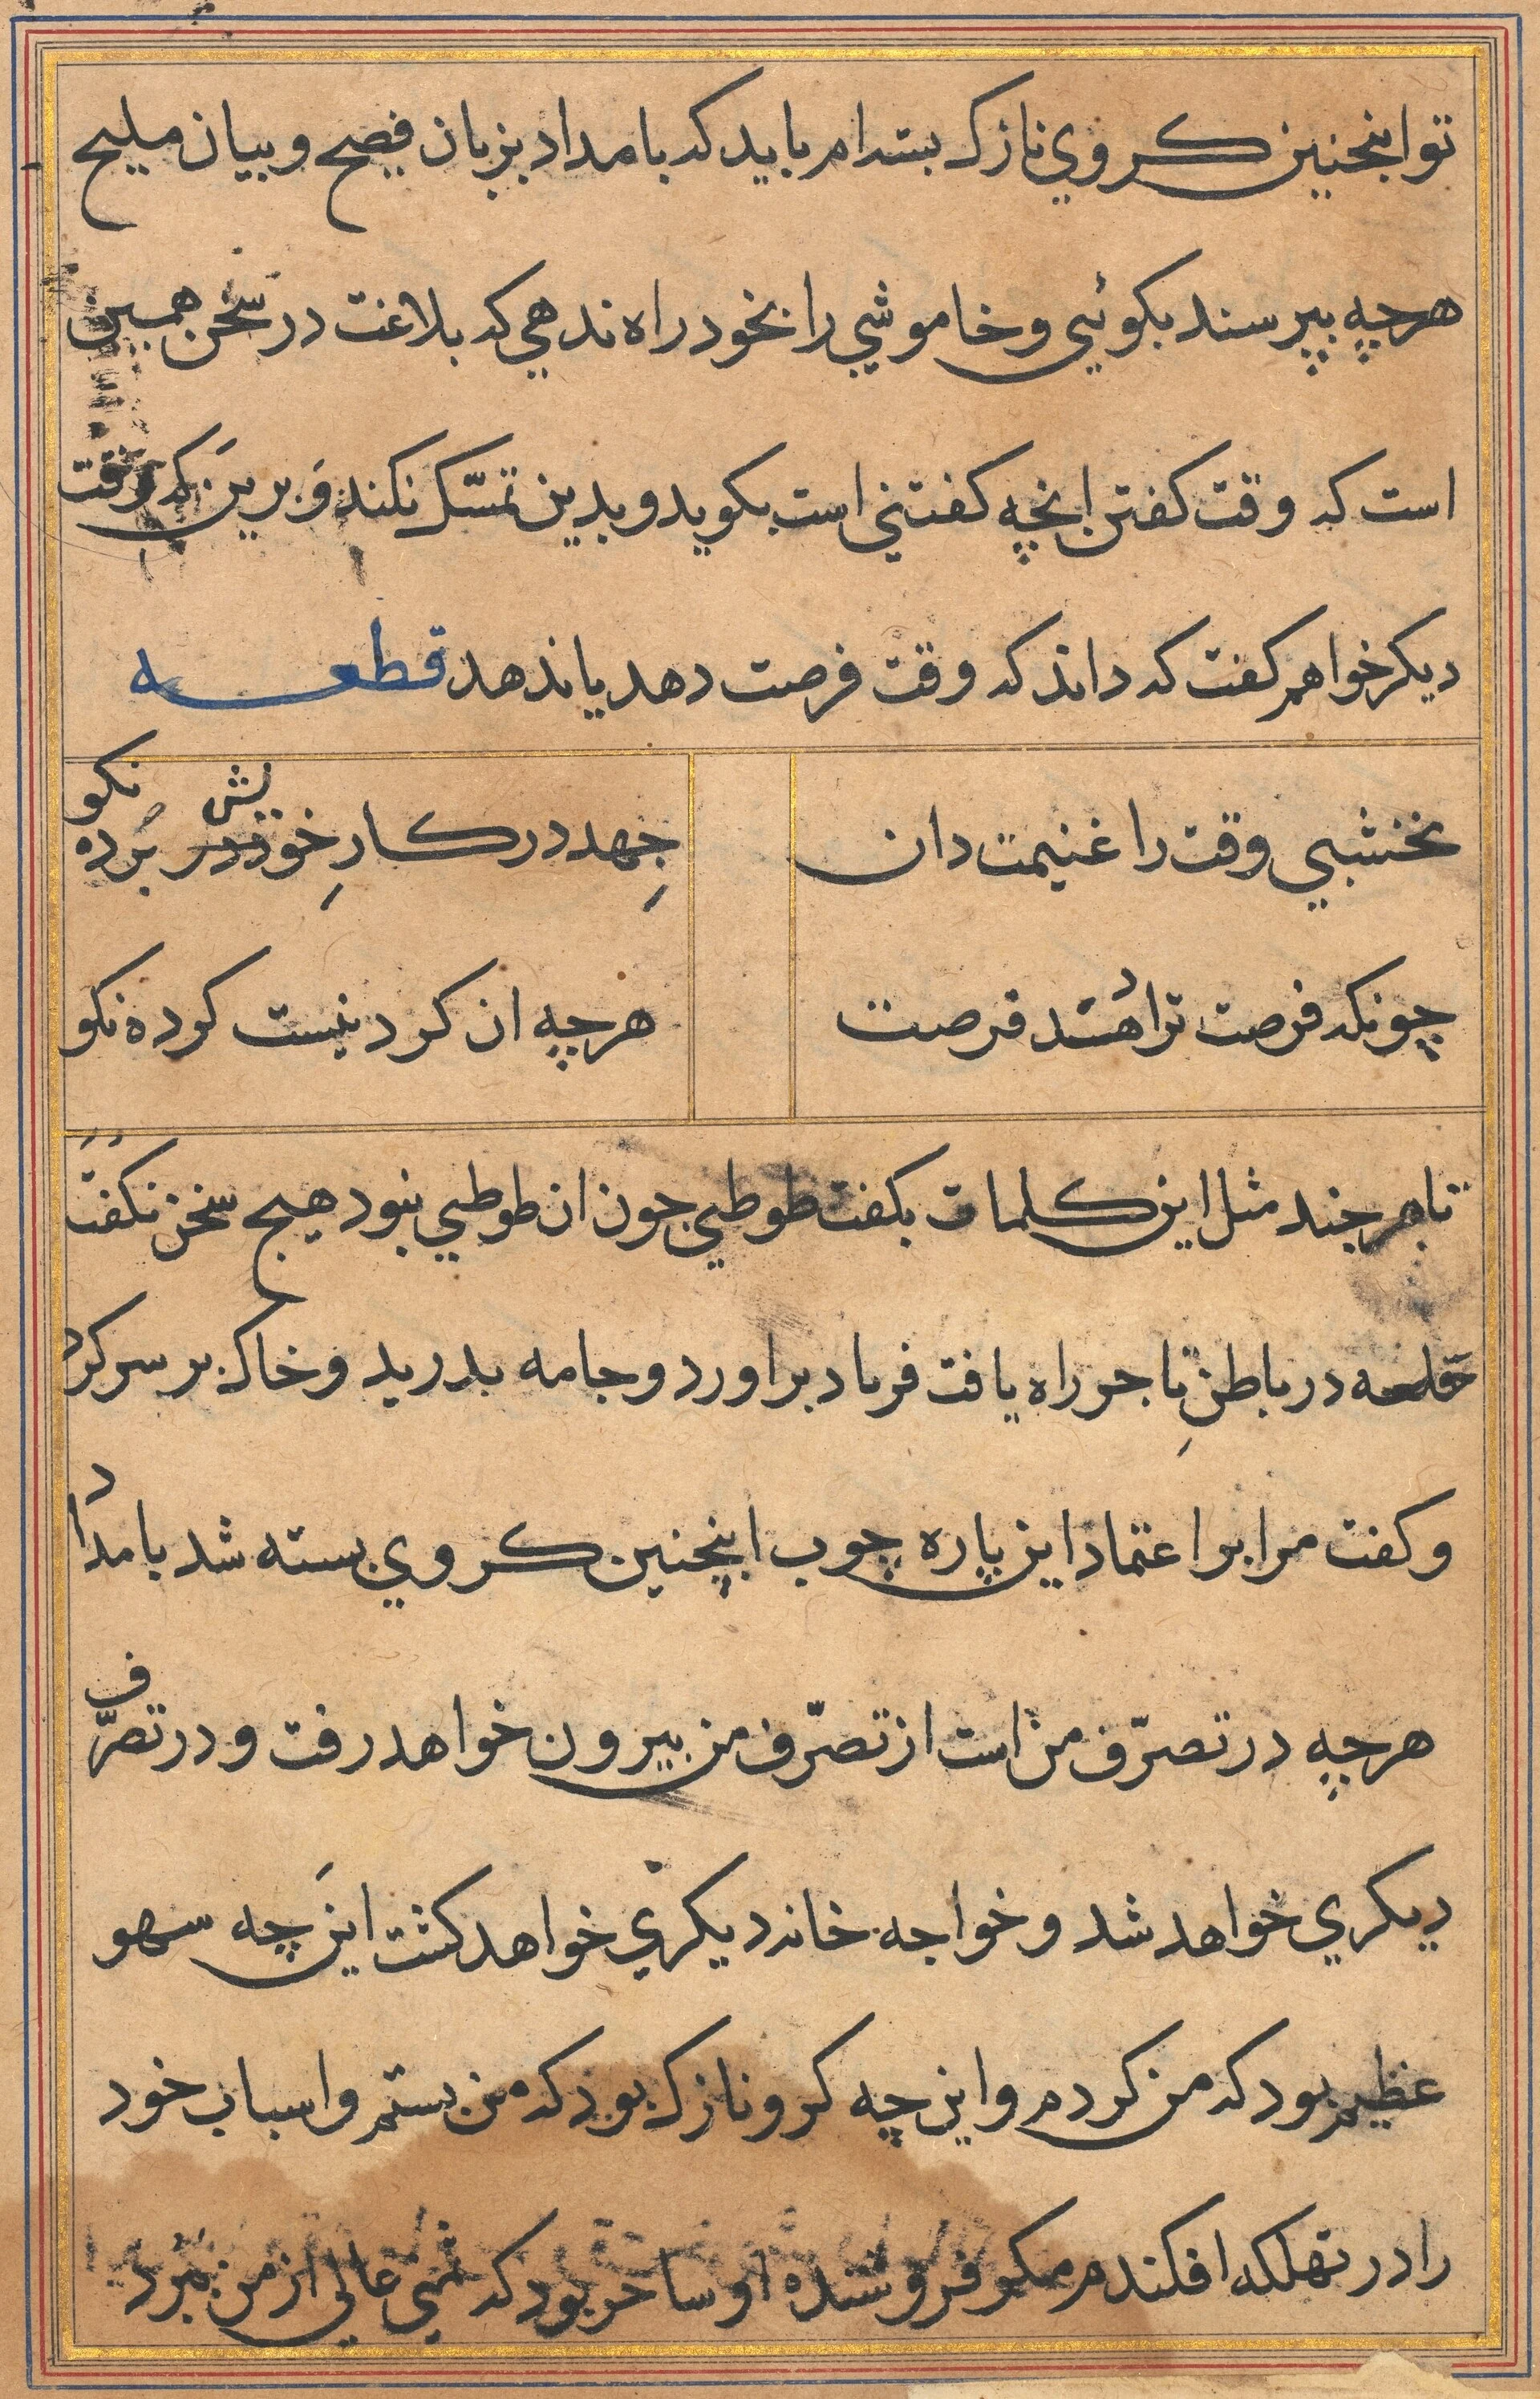 تو اینجنین کروي نازک بسته‌ام باید که بامداد بزبان فصیح و بیان ملیح
هرچه بپرسند بکوئي و خاموشي را بخود راه ندهي که بلاغت در سخن همین
است که وقت کفتن انچه کفتني است بکوید و بدین تمسّک نکند و برین که وقت
دیکر خواهم کفت که داند که وقت فرصت دهد یا ندهد قطعه
نخشبي وقت را غنیمت دان
جهد در کارِ خویش برده نکو
چونکه فرصت ترا دهند فرصت
هرچه ان کردنیست کرده نکو
تاجر جند مثل این کلمات بکفت طوطي جون ان طوطي نبود هیچ سخن نکفت
در باطنِ تاجر راه یافت فریاد براورد و جامه بدرید و خاک بر سر کرد
و کفت مرا بر اعتماد این پاره چوب اینچنین کروي بسته شد بامداد
هرچه در تصرّف من است از تصرّف من بیرون خواهد رفت و در تصرّف
دیکري خواهد شد و خواجه خانه دیکري خواهد کشت این چه سهو
عظیم بود که من کردم و این چه کرو نازک بود که من بستم و اسباب خود
را در تهلکه افکندم مکر فروشنده او ساحر بود که ثمني عالي از من ببرد